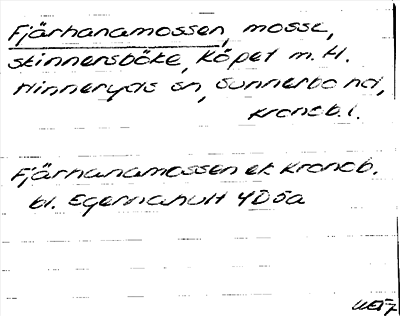 Fjärhanamossen, mosse,
Skinnersböke, Köpet m.fl.
Hinneryds sn, Sunnerbo hd,
Kronob. l.
Fjärhanamossen ek Kronob.
bl. Egernahult 4D5a